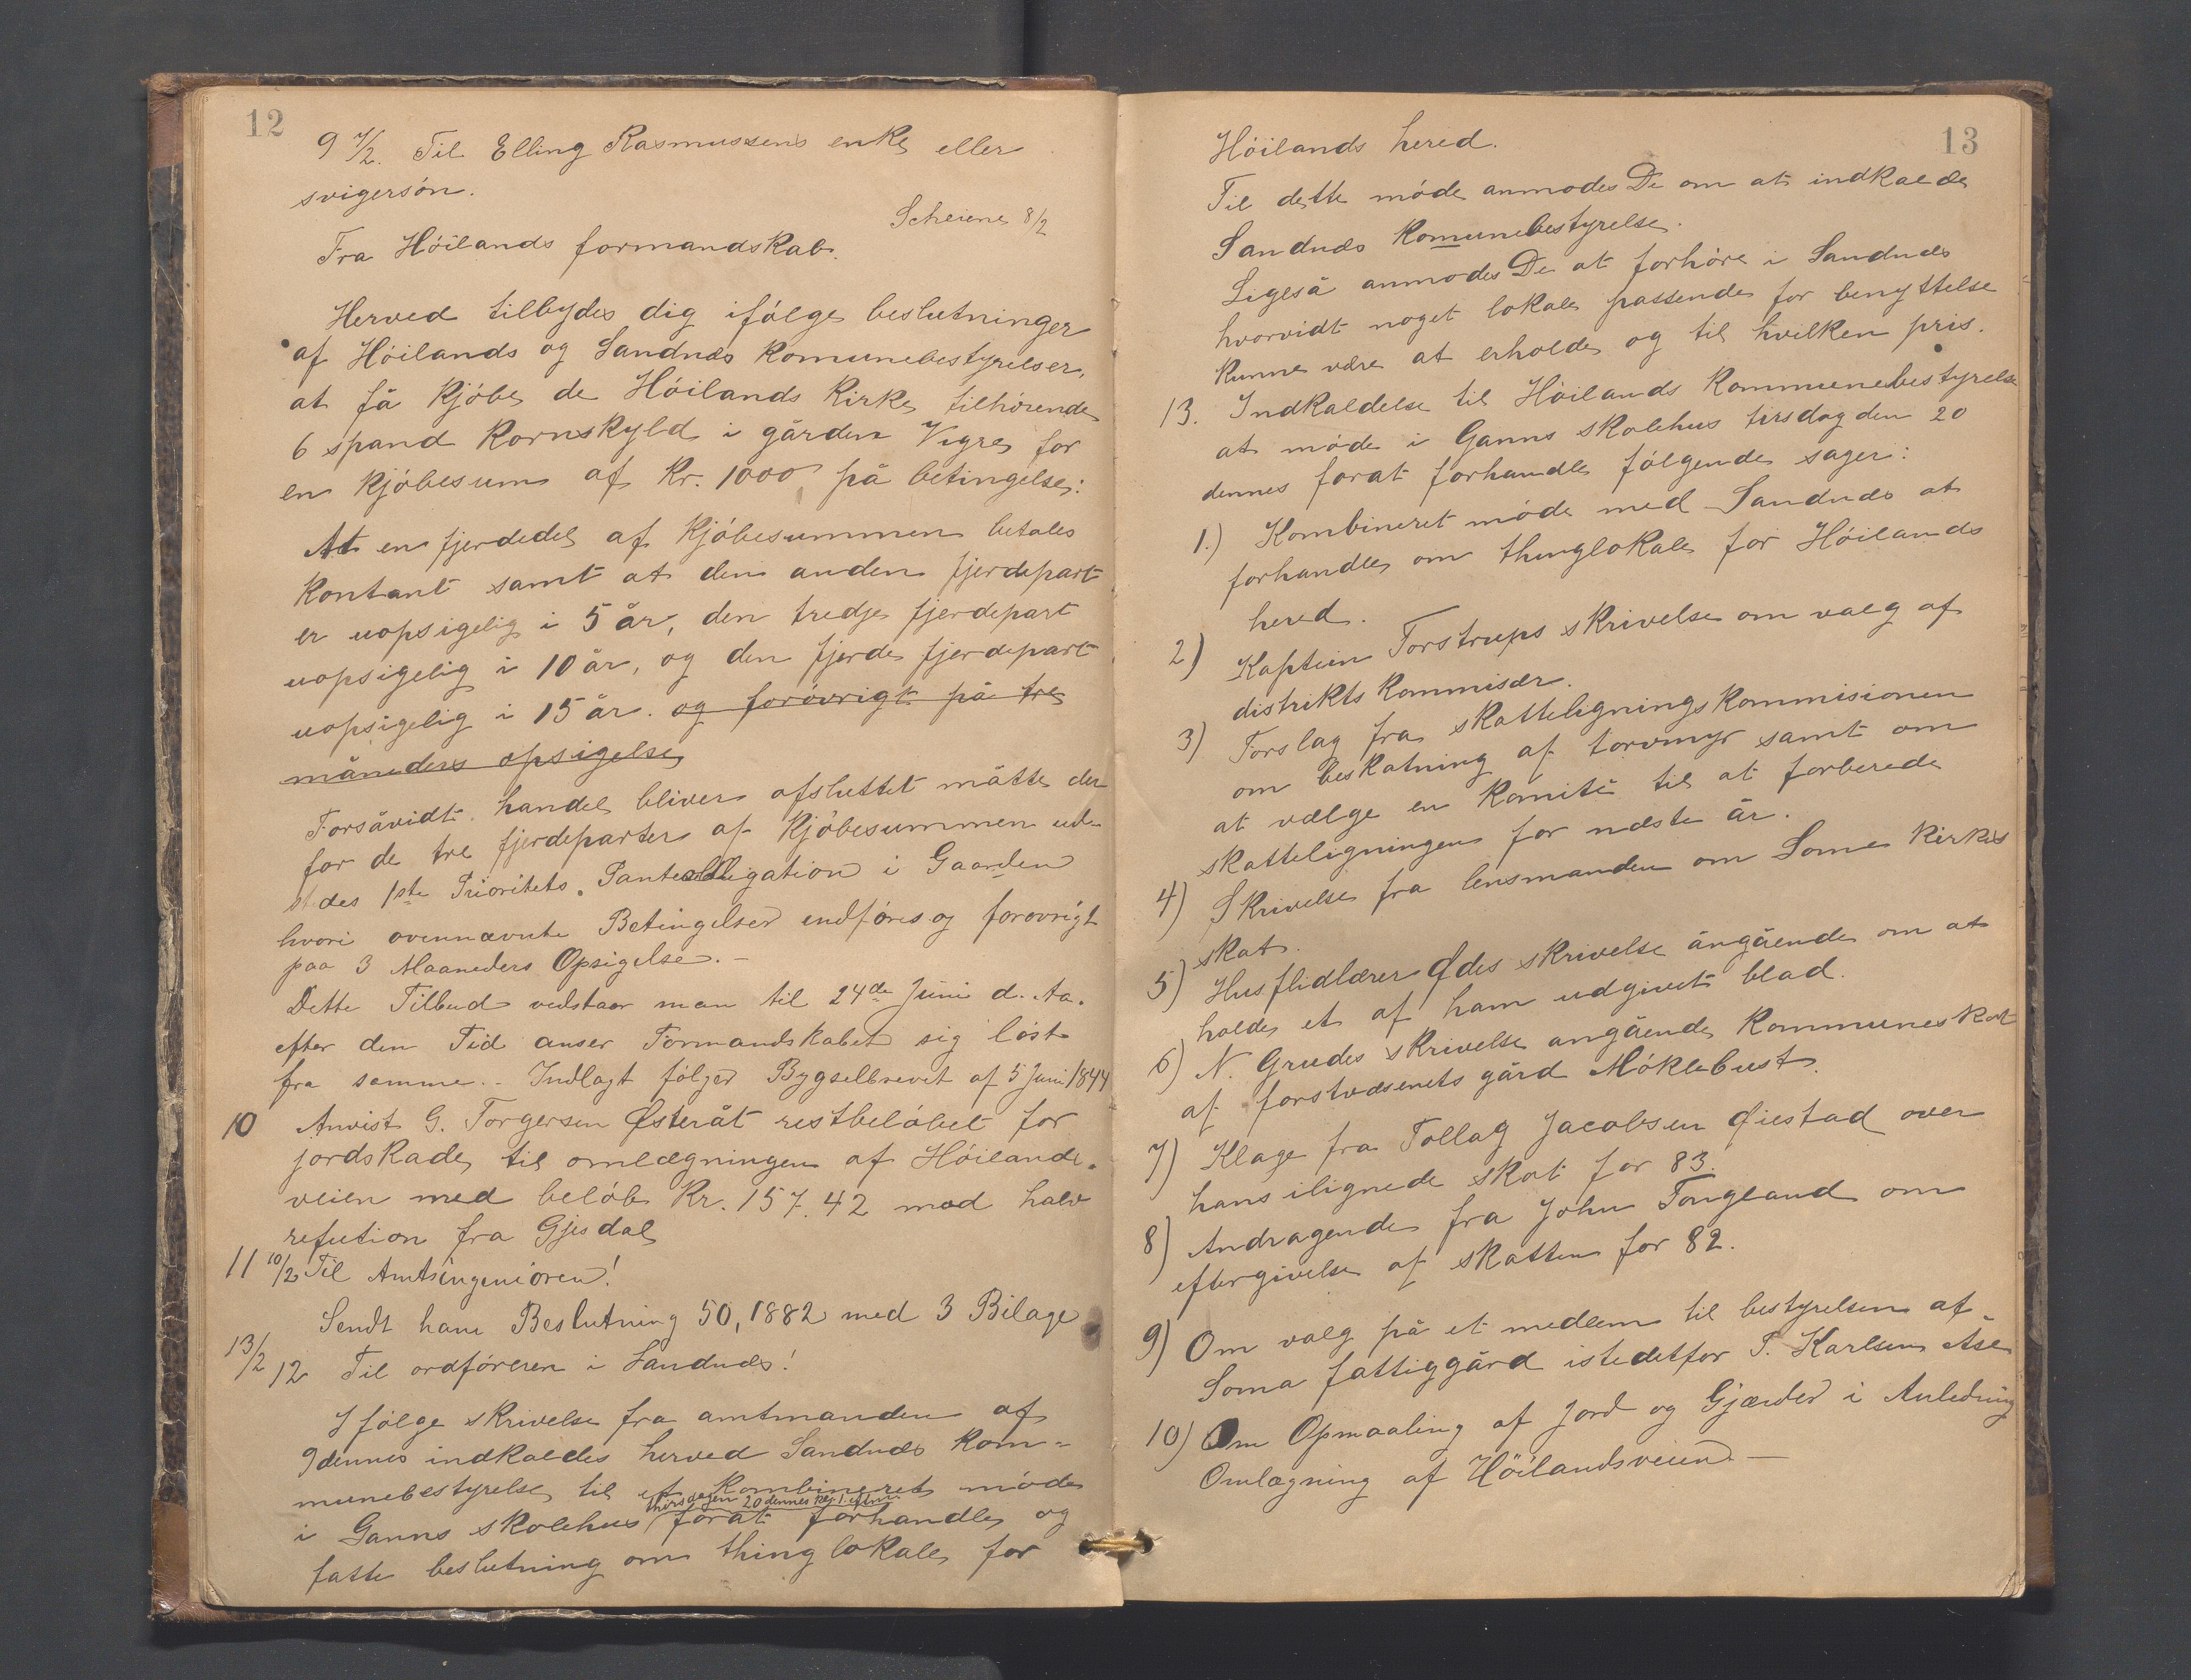 12
9 7/2. Til Elling Rasmussens enke eller
svigersön.
Scheiene 8/2
Fra Höilands formandskab.
Herved tilbydes dig ifölge beslutninger
af Höilands og Sandnæs komunebestyrelser,
at få kjöbe de Höilands kirke tilhörende
6 spand kornskyld i gården Vigre for
en kjöbesum af kr. 1000 på betingelse:
At en fjerdedel af kjöbesummen betales
kontant samt at den anden fjerdepart
er uopsigelig i 5 år, den tredje fjerdepart
uopsigelig i 10 år, og den fjerde fjerdepart
uopsigelig i 15 år. og forövrigt på tre
måneders opsigelse
Forsåvidt handel bliver afsluttet måtte der
for de tre fjerdeparter af kjöbesummen ud-
stedes 1ste Prioritets Panteobligation i Gaarden
hvori ovennævnte Betingelser indföres og forovrigt
paa 3 Maaneders Opsigelse. -
Dette Tilbud vedstaar man til 24de Juni d. Aa.
efter den Tid anser Formandskabet sig löst
fra samme. - Indlagt fölger Bygselbrevet af 5 Juni 1844
10 Anvist G. Torgersen Østeråt restbelöbet for
jordskade til omlægningen af Höilands-
veien med belöb kr. 157.42 mod halv
refution fra Gjesdal
11 10/2 Til Amtsingeniören!
Sendt ham Beslutning 50, 1882 med 3 Bilage
13/2 12 Til ordföreren i Sandnæs!
Ifölge skrivelse fra amtmanden af
9 dennes indkaldes herved Sandnæs kom-
munebestyrelse til et kombineret möde
thirsdagen 20 dennes klj. 1. eftm.
i Ganns skolehus forat forhandle og
fatte beslutning om thinglokale for
13
Höilands hered.
Til dette möde anmodes De om at indkalde
Sandnæs komunebestyrelse.
Ligeså anmodes De at forhöre i Sandnæs
hvorvidt noget lokale passende for benyttelse
kunne være at erholde og til hvilken pris.
13. Indkaldelse til Höilands kommunebestyrelse
at möde i Ganns skolehus tirsdag den 20
dennes forat forhandle fölgende sager:
1.) Kombineret möde med Sandnæs at
forhandle om thinglokale for Höilands
hered.
2) Kaptein Torstrups skrivelse om valg af
distriktskommisær.
3) Forslag fra skatteligningskommisionen
om beskatning af torvmyr samt om
at vælge en komite til at forberede
skatteligningen for næste år.
4) Skrivelse fra lensmanden om Some kirkes
skat.
5) Husflidlærer Ødes skrivelse ångående om at
holde et af ham udgivet blad.
6) N. Grudes skrivelse angående kommuneskat
af forstvæsenets gård Möklebust.
7) Klage fra Tollag Jacobsen Øiestad over
hans ilignede skat for 83.
8) Andragende fra John Tongland om
eftergivelse af skatten for 82.
9) Om valg på et medlem til bestyrelsen af
Soma fattiggård istedetfor T. Karlsen Åse
10) Om Opmaaling af Jord og Gjærder i Anledning
Omlægning af Höilandsveien. -